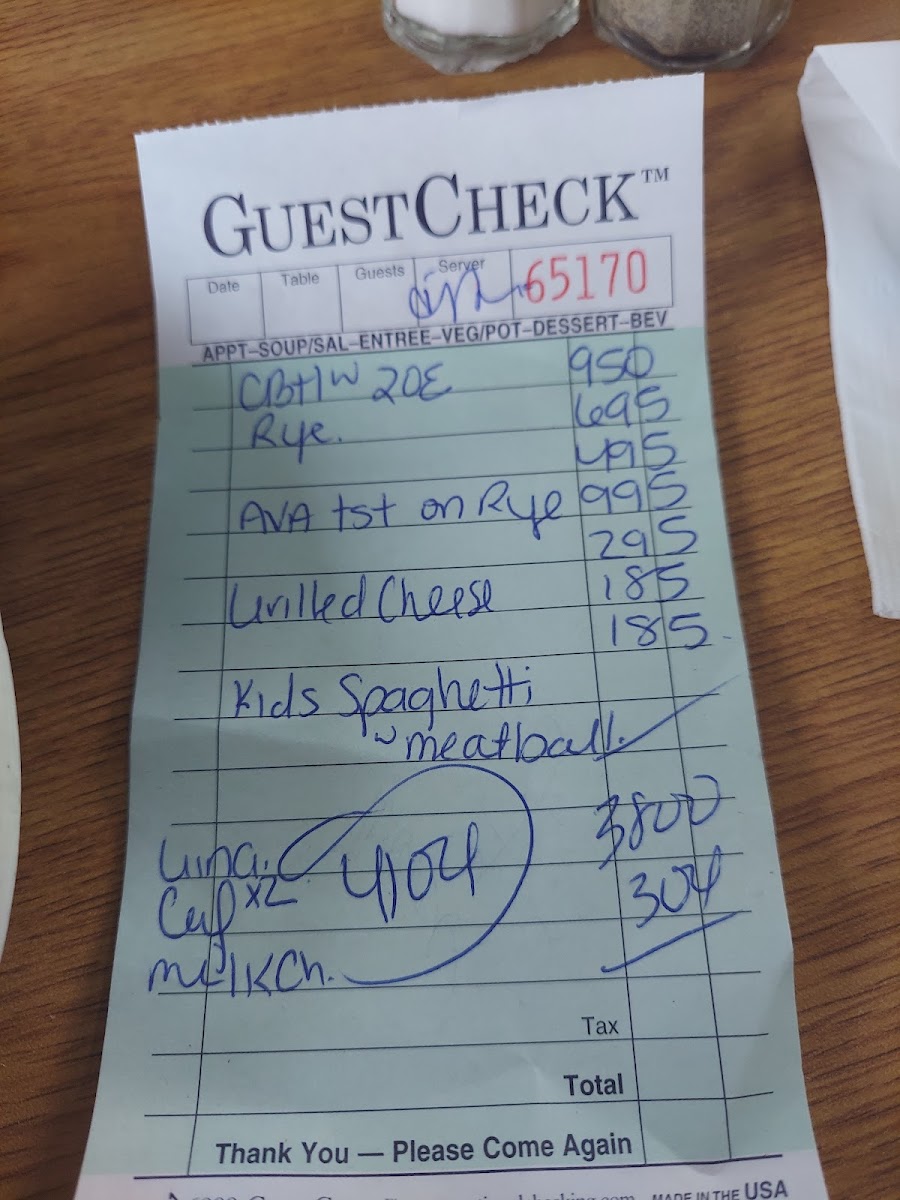 GUESTCHECK™
Date Table Guests Server 65170
APPT–SOUP/SAL–ENTREE–VEG/POT–DESSERT–BEV
CBHW 20E 950
Rye. 695
495
AVA tst on Rye 995
295
Grilled Cheese 185
185
Kids Spaghetti
w meatball.
3800
404
x2 304
milk Ch.
Tax
Total
Thank You — Please Come Again
MADE IN THE USA